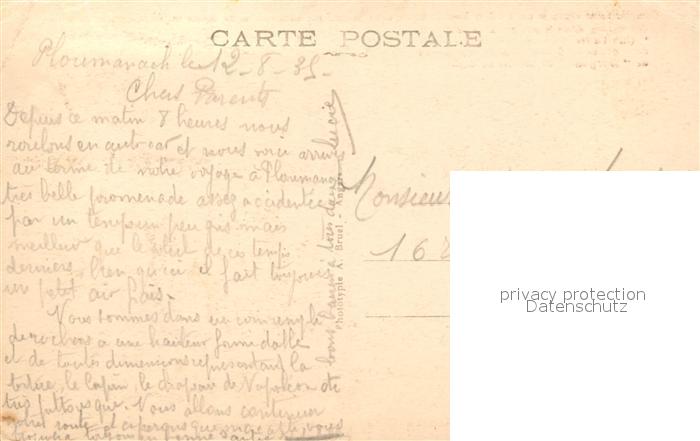 CARTE POSTALE
Ploumanach le 12-8-35-
Chers Parents
Depuis ce matin 8 heures nous
roulons en autocar et nous voici arrivés
au terme de notre voyage à Ploumanach
très belle promenade assez accidentée
par un temps un peu gris mais
meilleur que le soleil de ces temps
derniers, bien qu'ici il fait toujours
un petit air frais.
Nous sommes dans un coin rempli
de rochers à une hauteur formidable
et de toutes dimensions représentant la
tortue, le lapin, le chapeau de Napoléon etc
très pittoresque. Nous allons continuer
notre route et
bons baisers à tous deux Lucie
Phototypie A. Bruel - Angers
Monsieur
162
privacy protection
Datenschutz